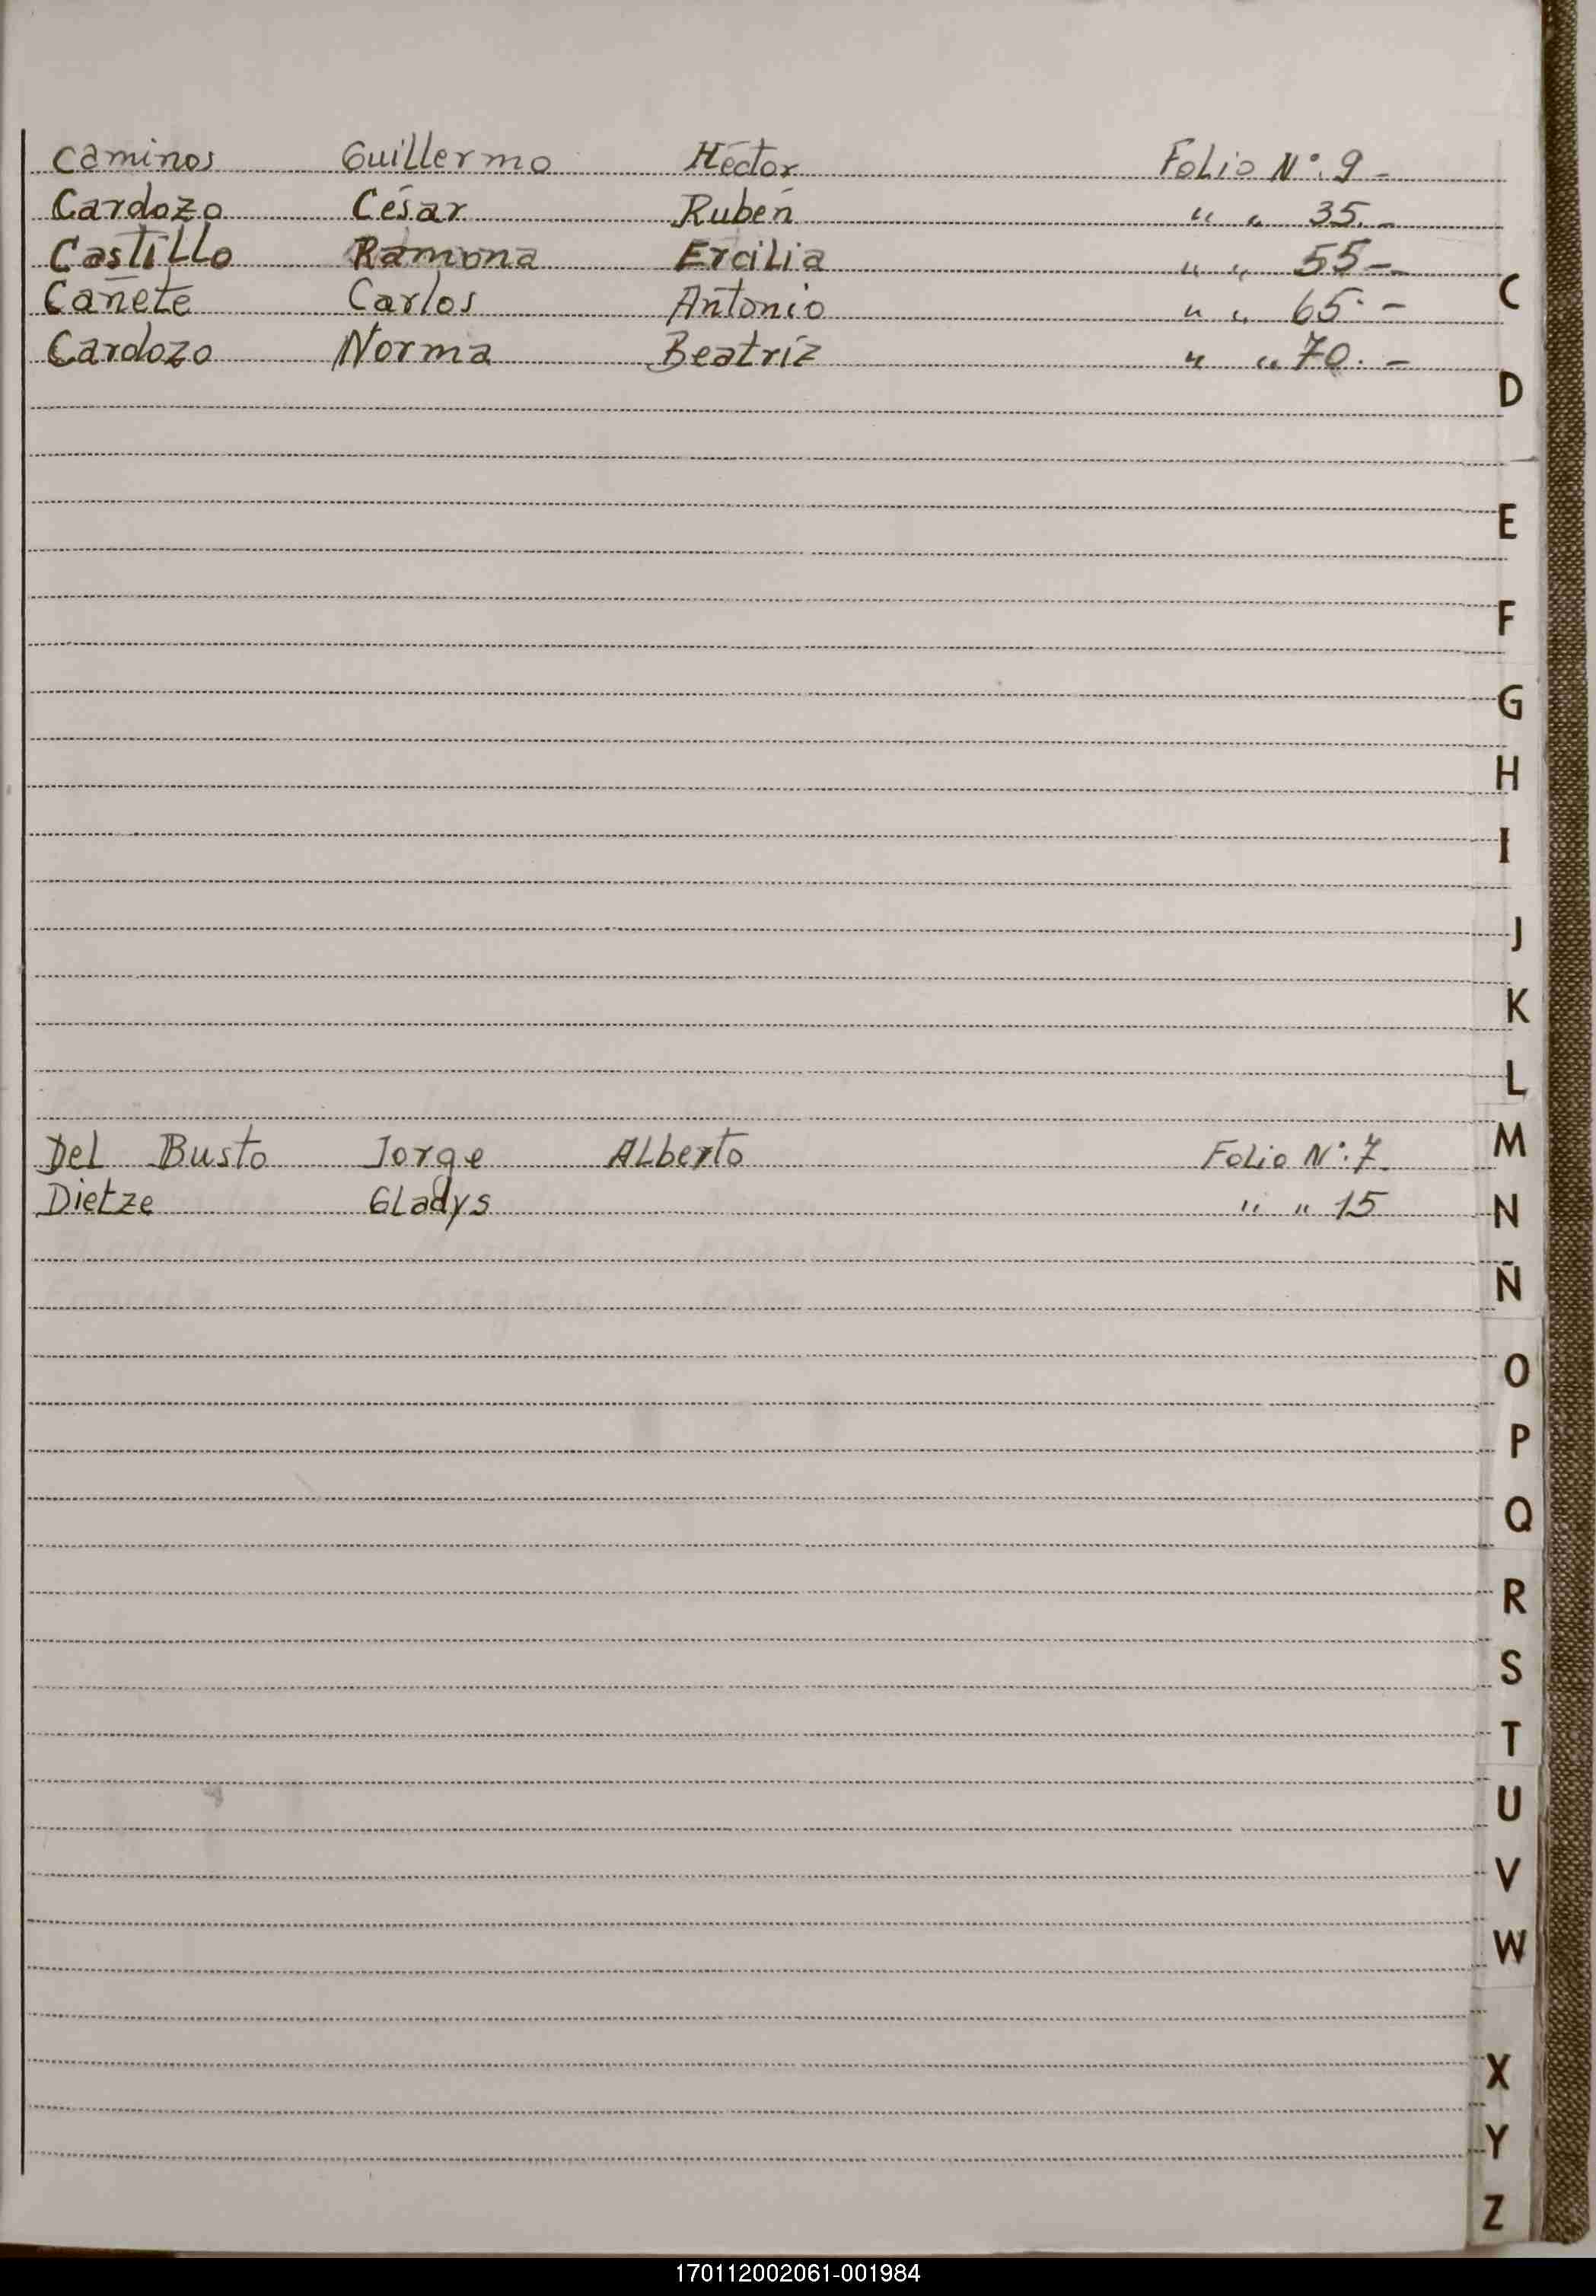 Caminos Guillermo Héctor Folio N°. 9 -
Cardozo César Rubén " " 35. -
Castillo Ramona Ercilia " " 55 -
Cañete Carlos Antonio " " 65. -
Cardozo Norma Beatríz " " 70. -
C
D
E
F
G
H
I
J
K
L
Del Busto Jorge Alberto Folio N°. 7.
M
Dietze Gladys " " 15
N
Ñ
O
P
Q
R
S
T
U
V
W
X
Y
Z
170112002061-001984